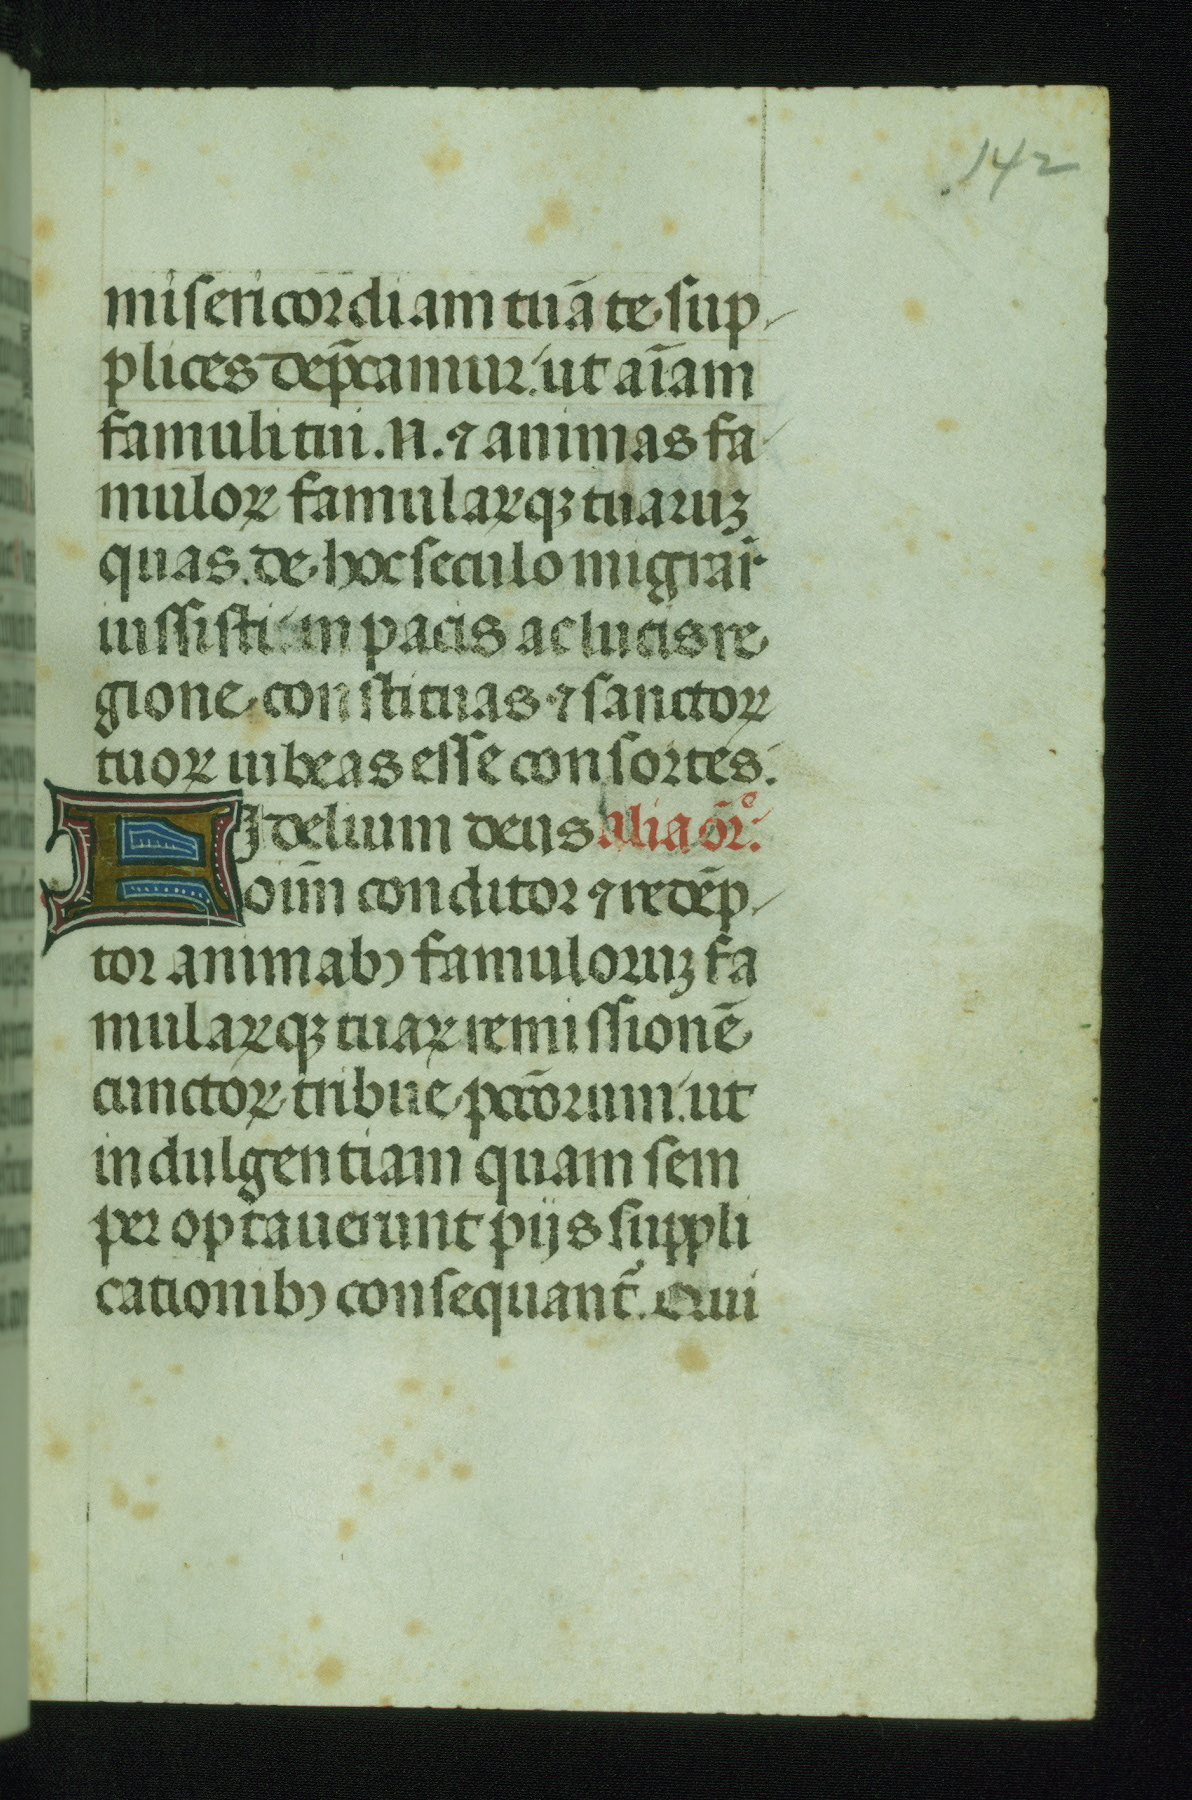 142
misericordiam tuā te sup-
plices dep̄camur. ut aīam
famuli tui. N. ⁊ animas fa-
muloꝝ famulaꝝqꝫ tuaruꝫ
quas de hoc seculo migrar̄
iussisti in pacis ac lucis re
gione constituas ⁊ sanctoꝝ
tuoꝝ iubeas esse consortes.
Fidelium deus alia or̄o:
oīm conditor ⁊ redēp-
tor animabꝰ famuloruꝫ fa
mulaꝝqꝫ tuaꝝ remissionē
cunctoꝝ tribue pctōrum. ut
indulgentiam quam sem
per optauerunt pijs suppli
cationibꝰ consequant᷑. Qui